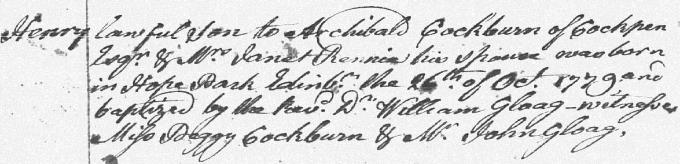 Henry lawful Son to Archibald Cockburn of Cockpen
Esqr. & Mrs Janet Rennie his spouse was born
in Hope Park Edinbr. the 26th. of Oct 1779 and
baptized by the Revd. Dr. William Gloag - witnesses
Miss Peggy Cockburn & Mr. John Gloag.